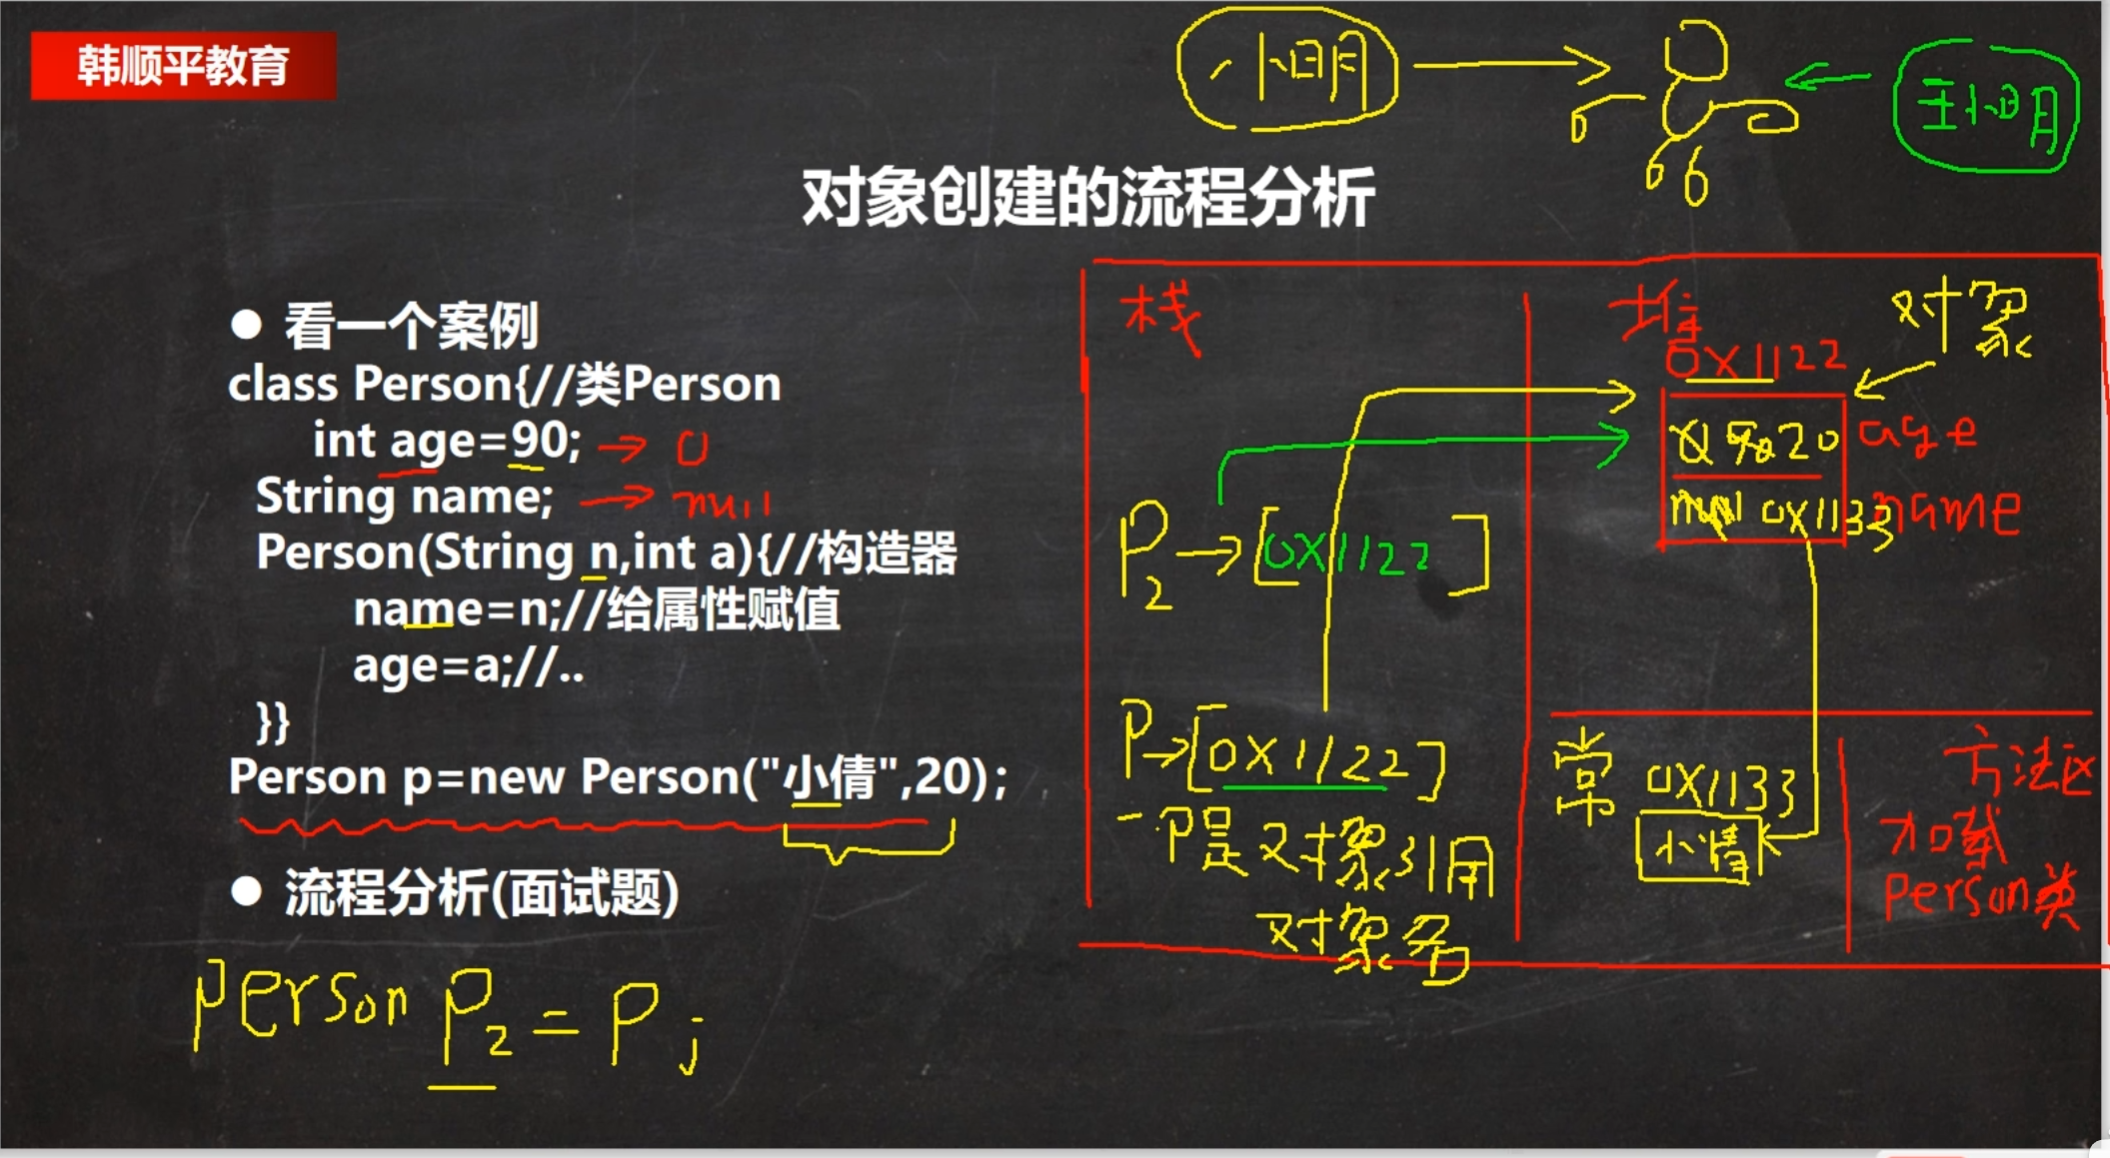 韩顺平教育
小明
王小明
对象创建的流程分析
● 看一个案例
class Person{//类Person
int age=90; → 0
String name; → null
Person(String n,int a){//构造器
name=n;//给属性赋值
age=a;//..
}}
Person p=new Person("小倩",20);
● 流程分析(面试题)
person p2 = p;
栈
p2→[0x1122]
p→[0x1122]
p是对象引用
对象名
堆
对象
0x1122
0 90 20 age
null 0x1133 name
常
0x1133
小情
方法区
加载
person类